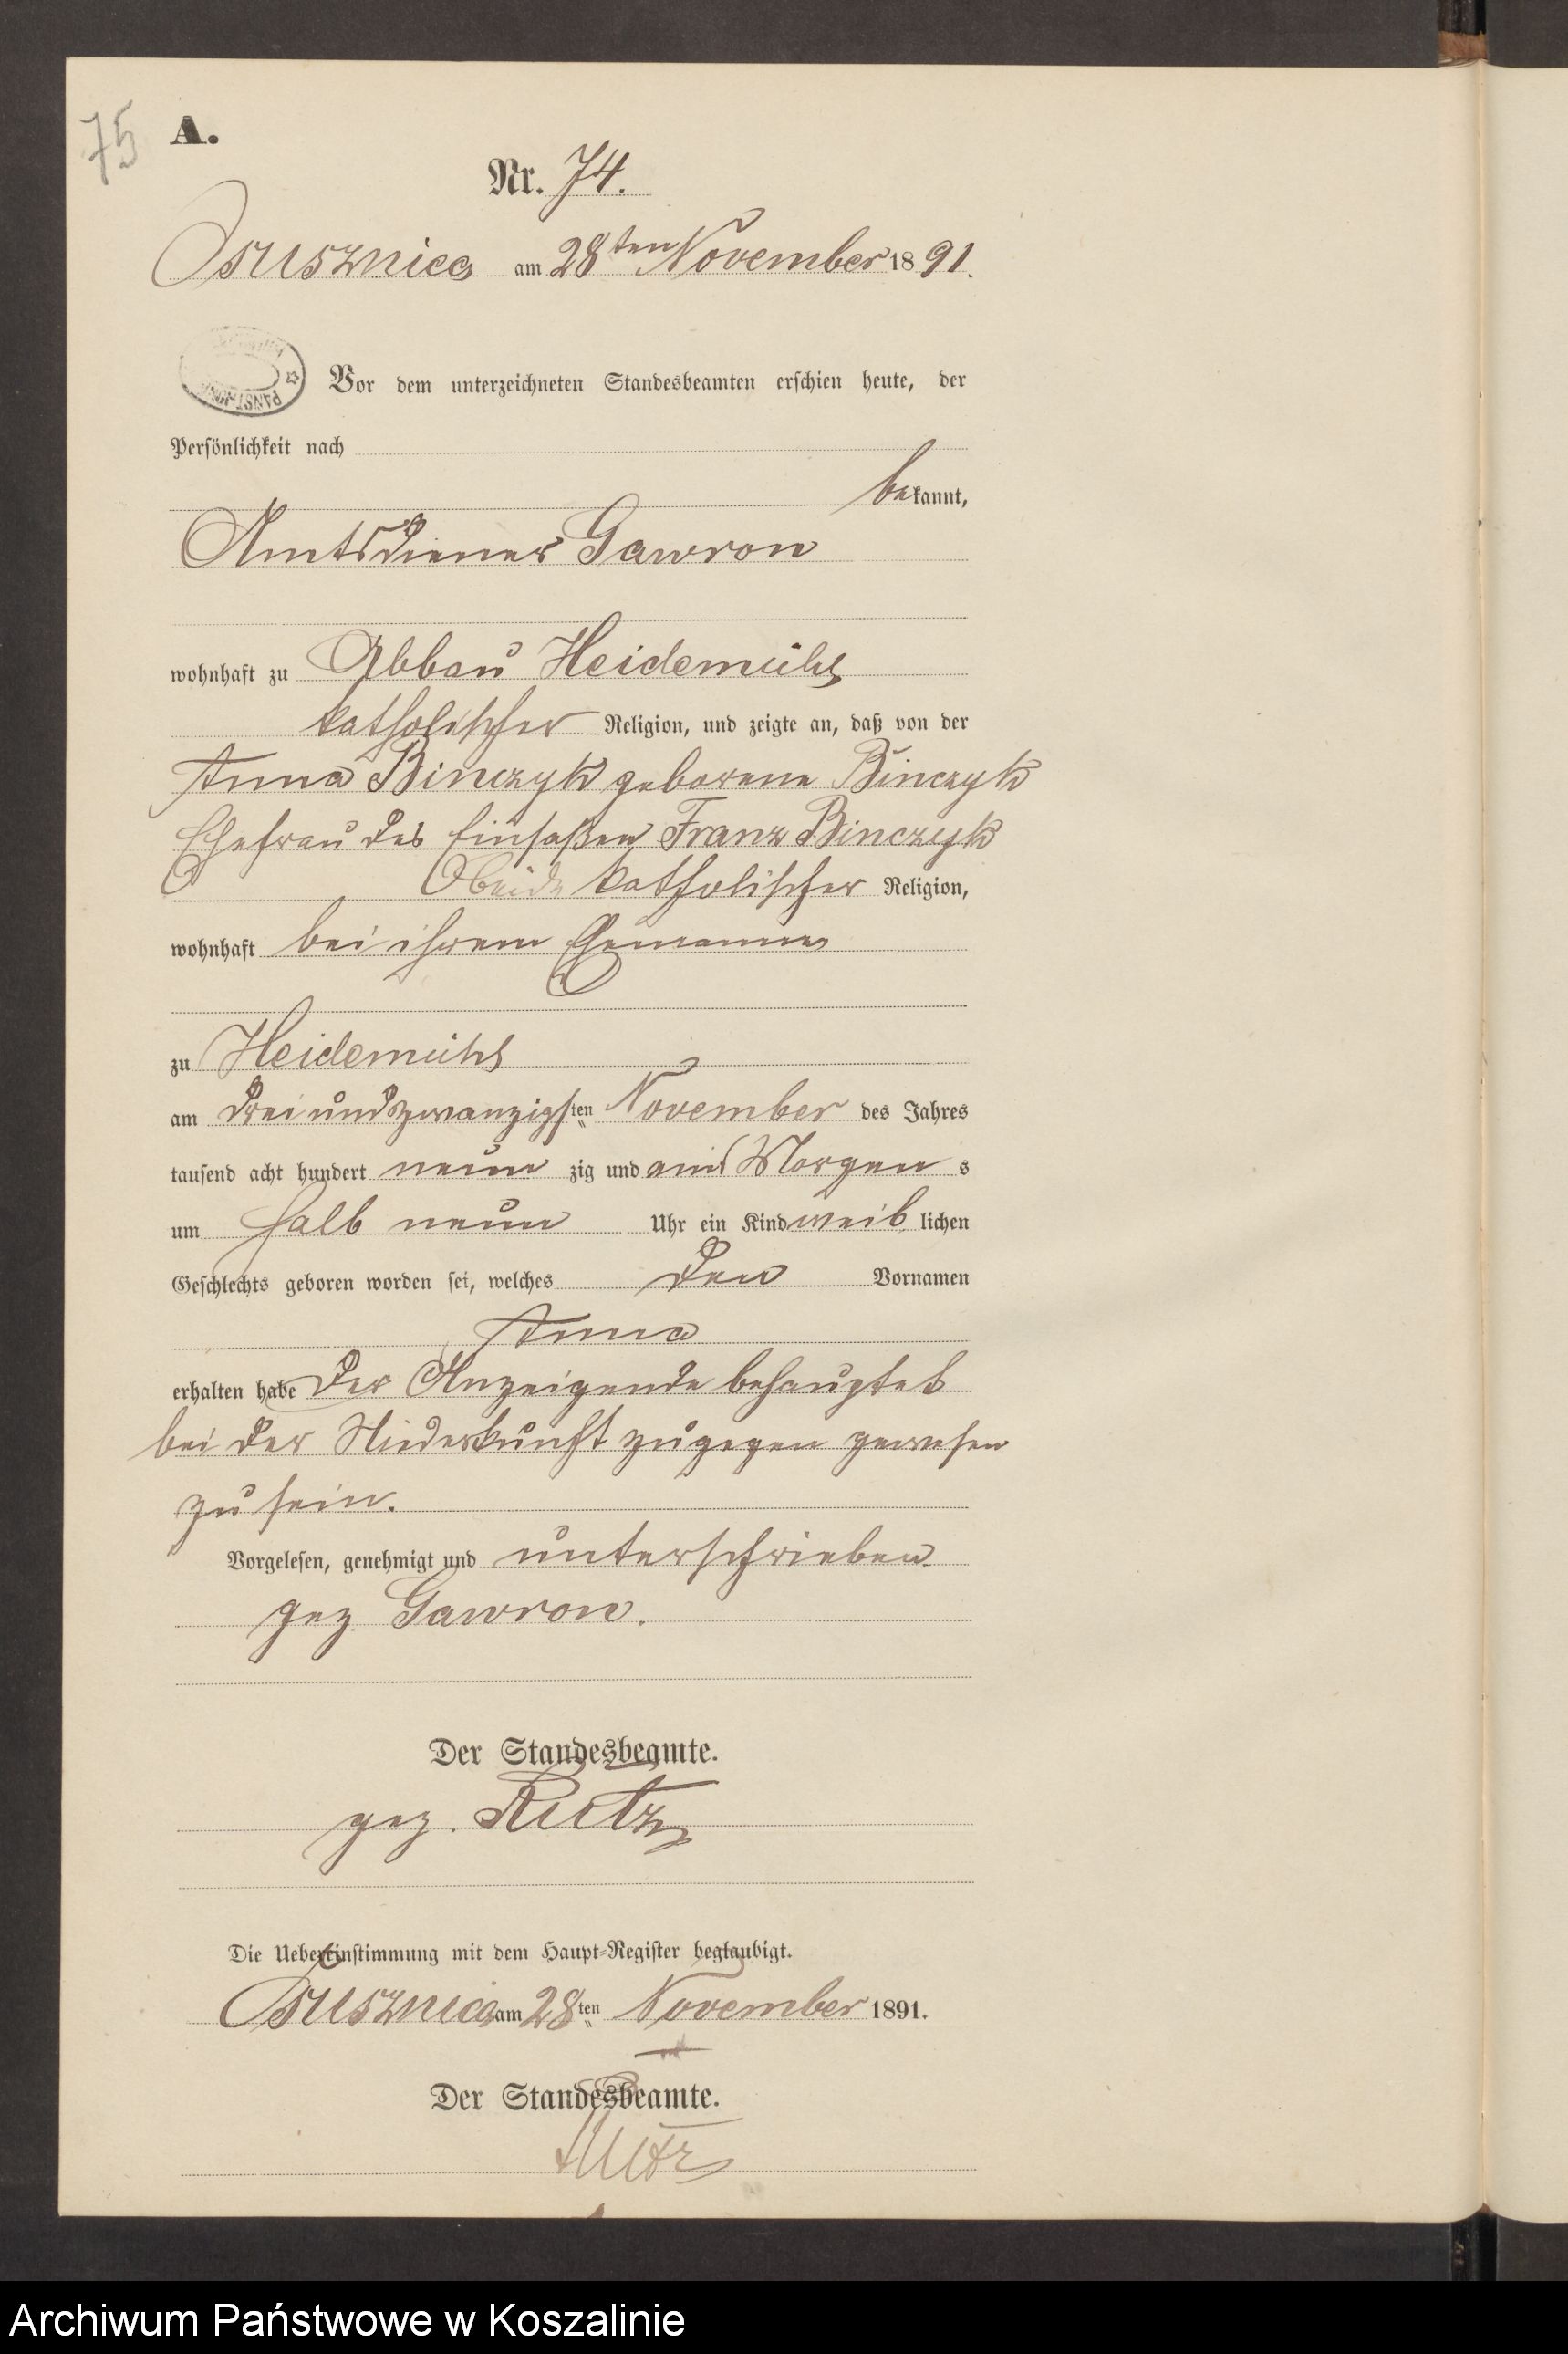 75
A.
Nr. 74.
Osusznica am 28ten November 1891.
Vor dem unterzeichneten Standesbeamten erschien heute, der
Persönlichkeit nach
bekannt,
Amtsdiener Gawron
wohnhaft zu Abbau Heidemühl
katholischer Religion, und zeigte an, daß von der
Anna Binczyk geborene Binczyk
Ehefrau des Einsaßen Franz Binczyk
beide katholischer Religion,
wohnhaft bei ihrem Ehemanne
zu Heidemühl
am dreiundzwanzigsten November des Jahres
tausend acht hundert neun zig und eins Morgens
um halb neun Uhr ein Kind weiblichen
Geschlechts geboren worden sei, welches den Vornamen
Anna
erhalten habe Der Anzeigende behauptet
bei der Niederkunft zugegen gewesen
zu sein.
Vorgelesen, genehmigt und unterschrieben
gez. Gawron.
Der Standesbeamte.
gez. Rutz
Die Uebereinstimmung mit dem Haupt-Register beglaubigt.
Osusznica am 28ten November 1891.
Der Standesbeamte.
Rutz
Archiwum Państwowe w Koszalinie